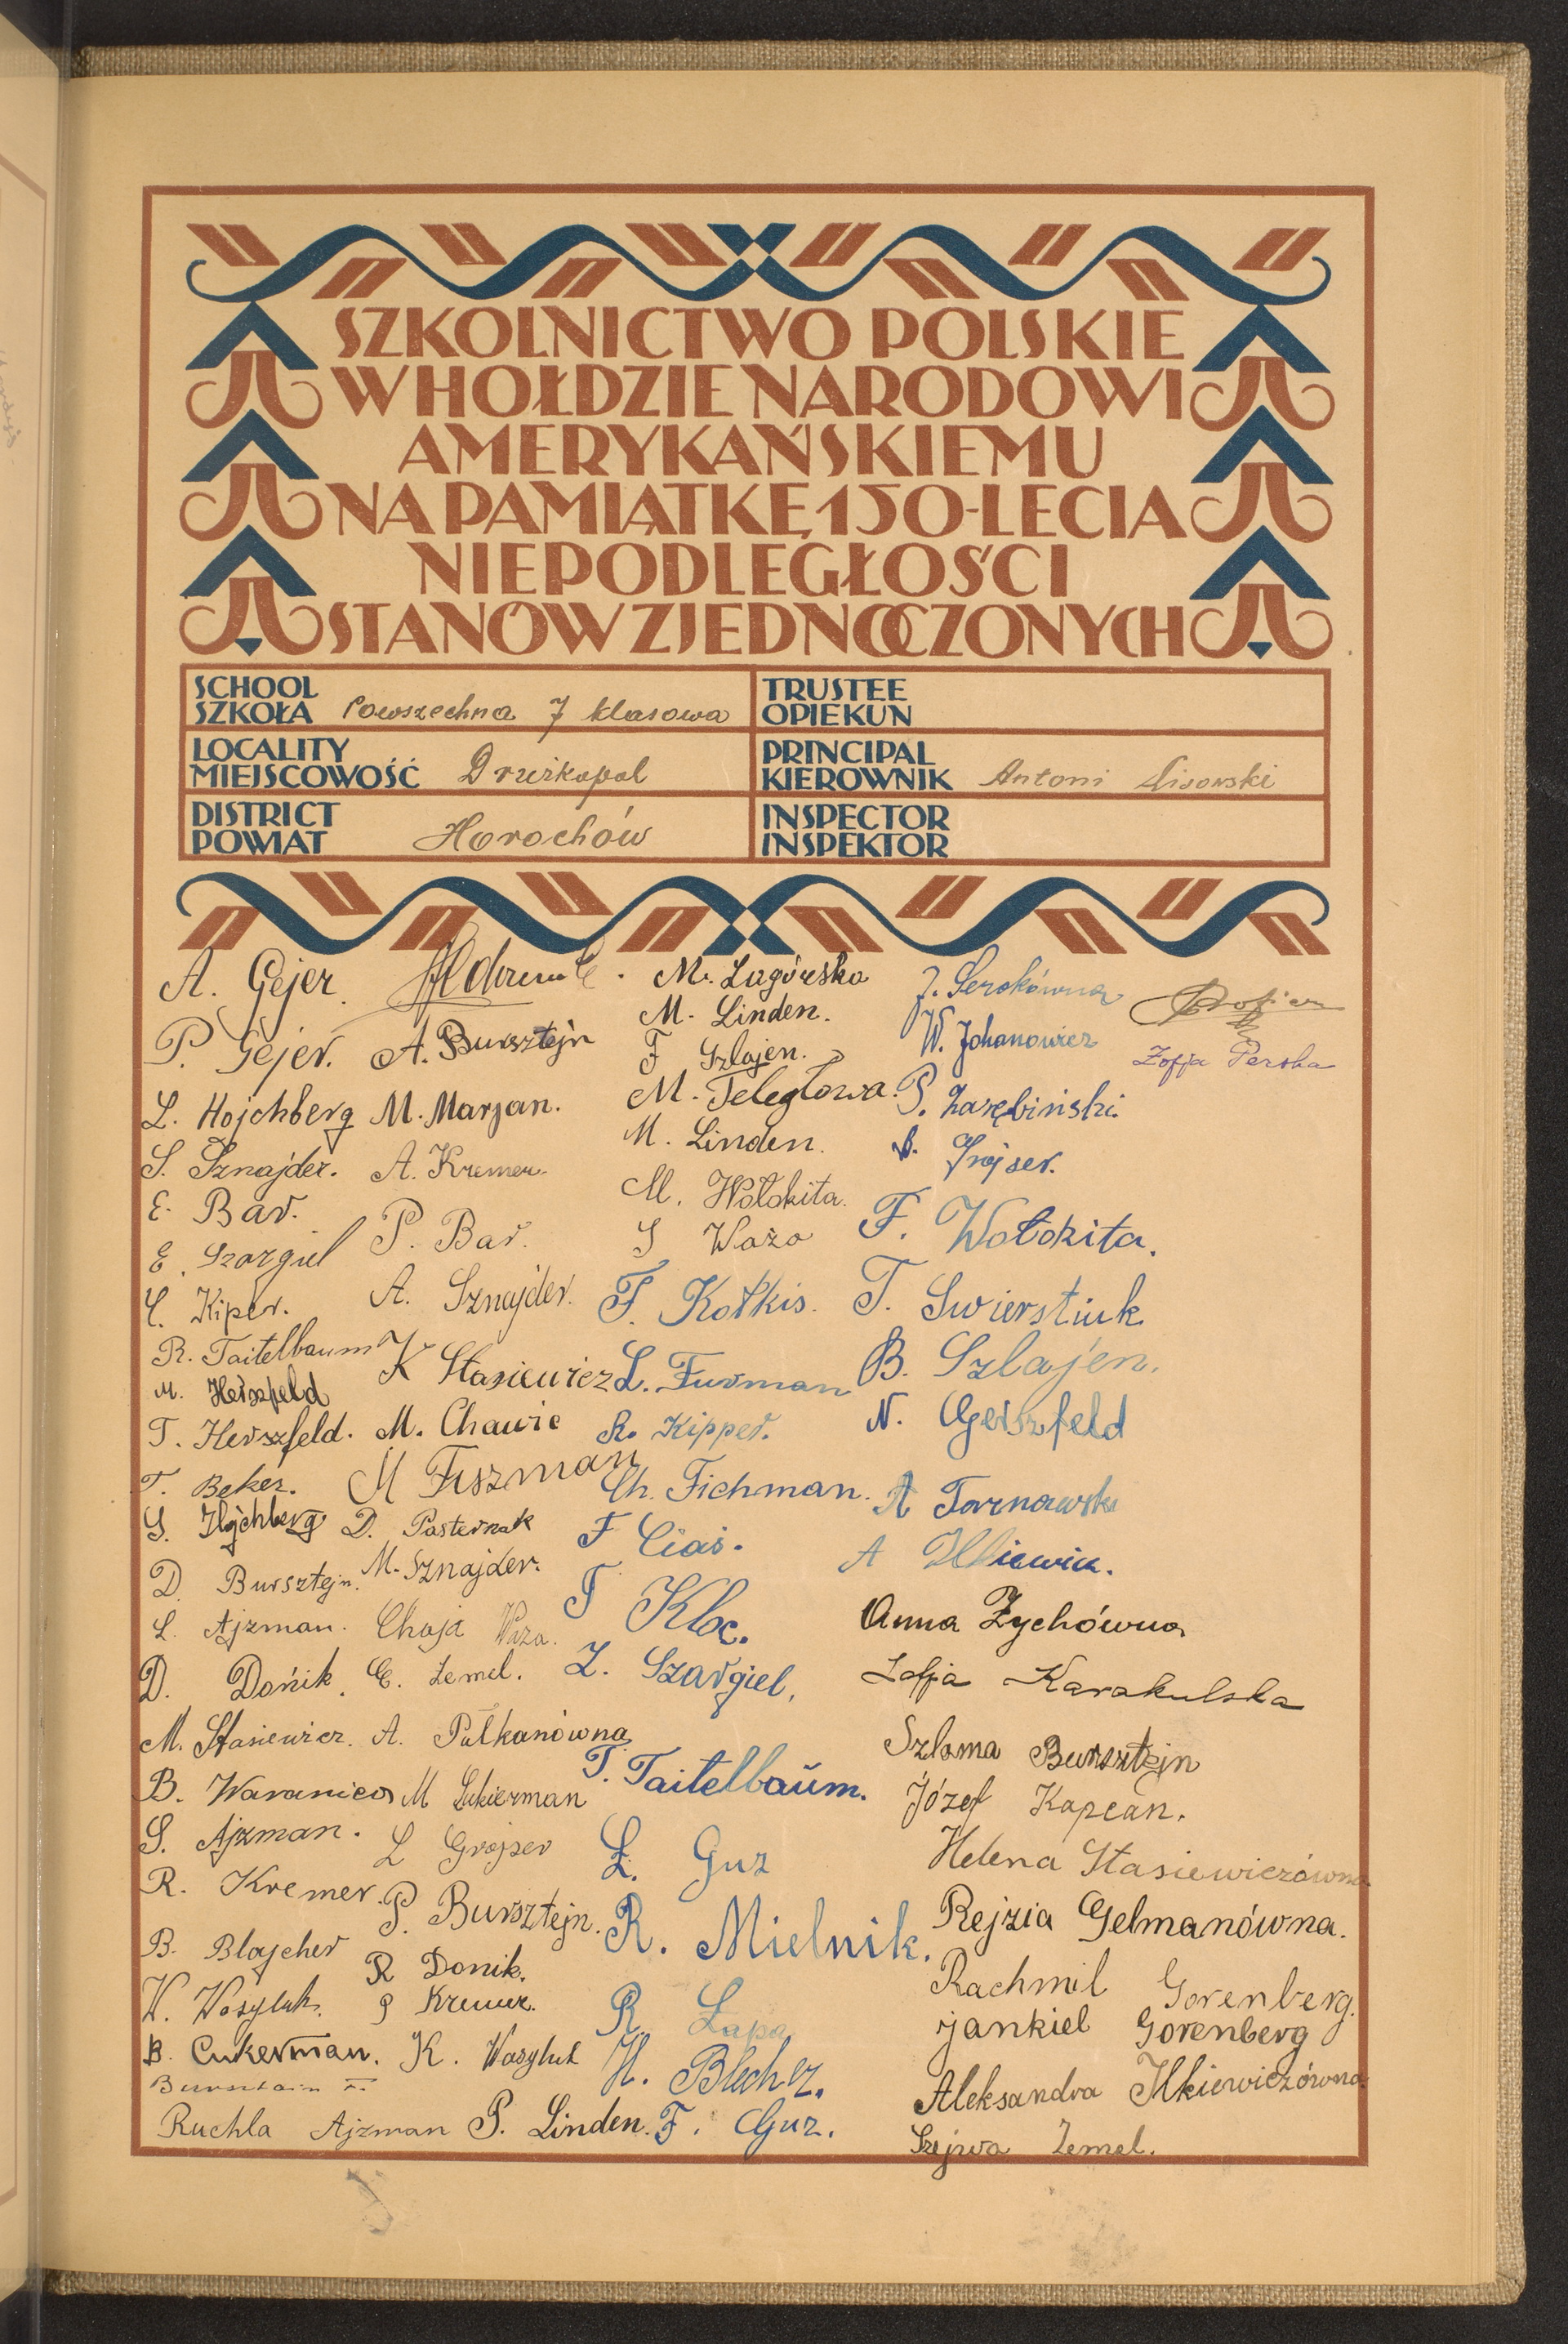 SZKOLNICTWO POLSKIE
W HOŁDZIE NARODOWI
AMERYKAŃSKIEMU
NA PAMIĄTKĘ 150-LECIA
NIEPODLEGŁOŚCI
STANÓW ZJEDNOCZONYCH
SCHOOL
SZKOŁA Powszechna 7 klasowa
TRUSTEE
OPIEKUN
LOCALITY
MIEJSCOWOŚĆ Drużkopol
PRINCIPAL
KIEROWNIK Antoni Lisowski
DISTRICT
POWIAT Horochów
INSPECTOR
INSPEKTOR
A. Gejer.
P. Gejer.
L. Hojchberg
S. Sznajder.
E. Bar.
E. Szargiel
C. Kiper.
R. Taitelbaum
M. Herszfeld
T. Herszfeld.
T. Beker.
S. Hojchberg
D. Bursztejn.
L. Ajzman.
D. Dońik.
M. Stasiewicz.
B. Waranica
S. Ajzman.
R. Kremer.
B. Blajcher
W. Wasyluk.
B. Cukerman.
Bursztain F.
Ruchla Ajzman
A. Bursztejn
M. Marjan.
A. Kremer.
P. Bar.
A. Sznajder.
K Stasiewicz
M. Chawie
M Fiszman
D. Pasternak
M. Sznajder.
Chaja Waza.
C. Zemel.
A. Pałkanówna
M Cukierman
L Grojser
P. Bursztejn.
R Donik.
P Kremer.
K. Wasyluk
P. Linden.
M. Zagórska
M. Linden.
F Szlajen.
M. Teległowa.
M. Linden.
M. Wołokita.
S Waza
F. Kotkis.
L. Furman
R. Kipper.
Ch. Fichman.
F Ciaś.
T Kloc.
Z. Szargiel.
T. Taitelbaum.
Ł. Guz
R. Mielnik.
R Łapa
H. Blecher.
F. Guz.
J. Serokówna
W. Johanowicz
P. Zarębiński.
B. Grojser.
F. Wołokita.
T. Swierstiuk
B. Szlajen.
N. Gerszfeld
A Tarnawski
A Ilkiewicz.
Anna Zychówna
Zofja Karakulska
Szloma Bursztejn
Józef Kapcan.
Helena Stasiewiczówna
Rejzia Gelmanówna.
Rachmil Gorenberg.
Jankiel Gorenberg
Aleksandra Ilkiewiczówna
Szejwa Zemel.
Zofja Perska